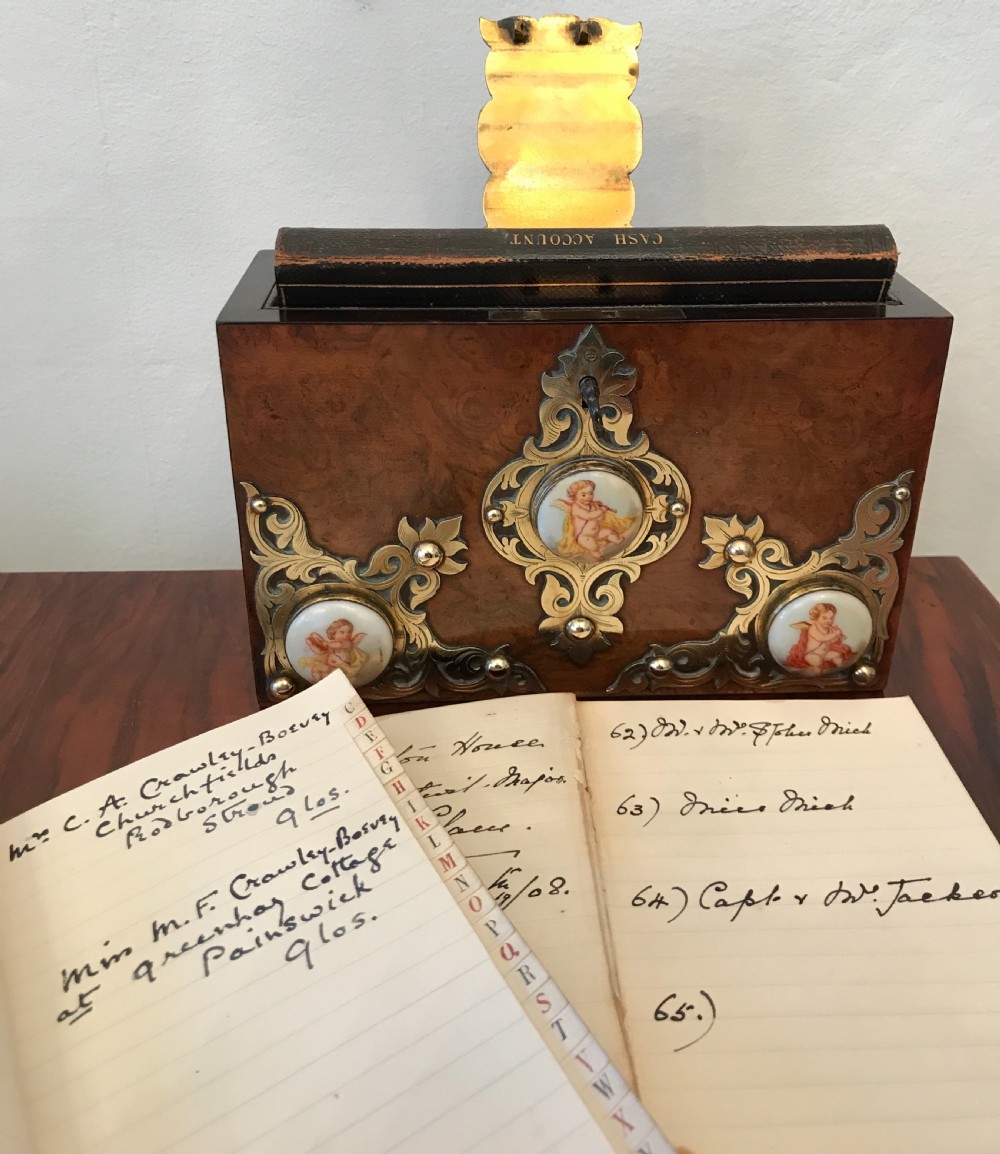 CASH ACCOUNT.
Mrs C. A. Crawley-Boevey
Churchfields
Rodborough
Stroud
Glos.
Miss M. F. Crawley-Boevey
at Greenhay Cottage
Painswick
Glos.
C
D
E
F
G
H
I
K
L
M
N
O
P
Q
R
S
T
V
W
X
Y
House
Major
Place.
/08.
62) Mr. & Mrs. St John Mick
63) Miss Mick
64) Capt. & Mrs.
65.)